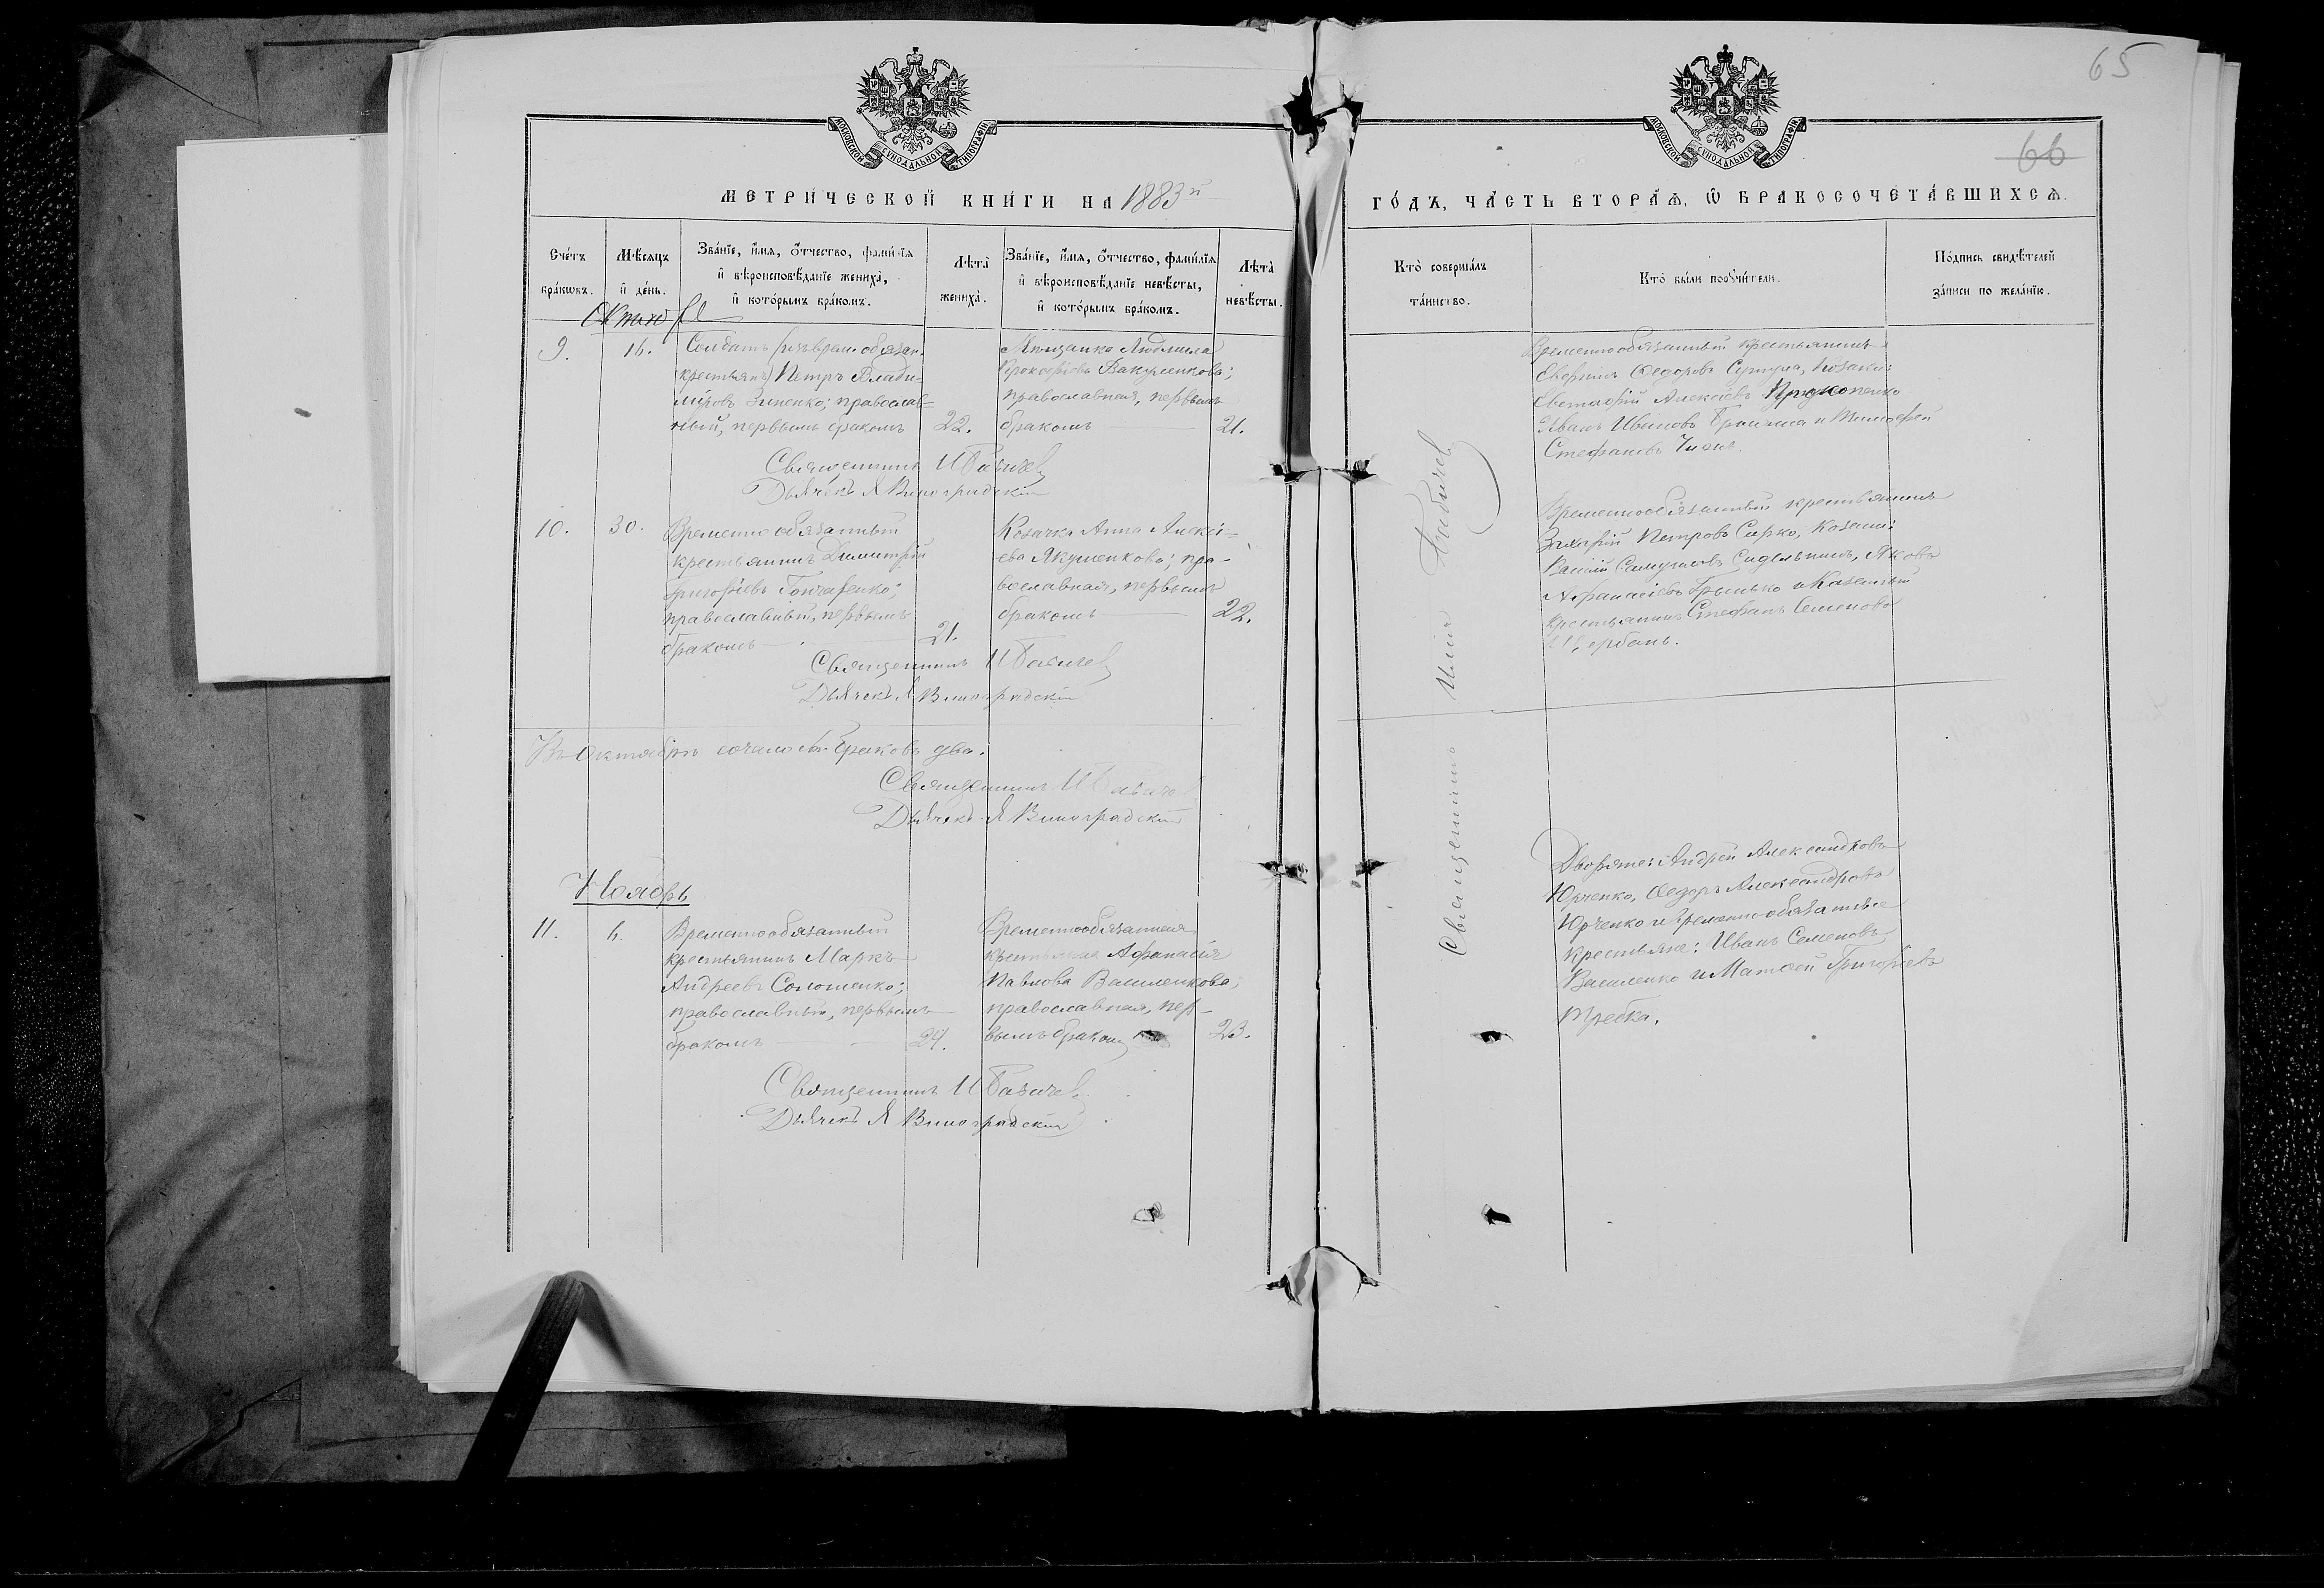 65
66
МОСКОВСКОЙ СѴНОДАЛЬНОЙ ТИПОГРАФІИ
МОСКОВСКОЙ СѴНОДАЛЬНОЙ ТИПОГРАФІИ
МЕТРИ́ЧЕСКОЙ КНИ́ГИ НА 1883й
ГО́ДЪ, ЧА́СТЬ ВТОРА́Ѧ, Ѡ҆ БРАКОСОЧЕТА́ВШИХСѦ.
Сче́тъ бра́кѡвъ.
Мѣ́сяцъ и де́нь.
Зва́нїе, и҆́мя, о҆́тчество, фами́лїя и҆ вѣроисповѣ́данїе жениха̀, и҆ кото́рымъ бра́комъ.
Лѣта̀ жениха̀.
Зва́нїе, и҆́мя, о҆́тчество, фами́лїя и҆ вѣроисповѣ́данїе невѣ́сты, и҆ кото́рымъ бра́комъ.
Лѣта̀ невѣ́сты.
Кто̀ соверша́лъ та́инство.
Кто̀ бы́ли порꙋчи́тели.
По́дпись свидѣ́телей за́писи по жела́нїю.
9.
16.
Солдатъ (изъ врем. обязан.
крестьянъ) Петръ Влади=
міровъ Зиненко; православ=
ный, первымъ бракомъ 22.
Мѣщанка Людмила
Вакуленкова;
православная, первымъ
бракомъ 21.
Временнообязанный крестьянинъ
Федоровъ Козаки:
Евстафій Алексѣевъ Прокопенко
Иванъ Ивановъ и Тимофей
Стефановъ
Священникъ И Бабичев
Дьячекъ Я Виноградскій
10.
30.
Временно обязанный
крестьянинъ Димитрій
Григоріевъ Гончаренко;
православный, первымъ
бракомъ 21.
Козачка Анна Алексѣ=
ева Якушенкова; пра-
вославная, первымъ
бракомъ 22.
Временнообязанный крестьянинъ
Захарій Петровъ Сирко, Козаки:
Василій Яковъ
Афанасіевъ Грынько и Казенный
крестьянинъ Стефанъ Семеновъ
Щербань.
Священникъ И Бабичев
Дьячекъ Я Виноградскій
Въ Октябрѣ браковъ два.
Священникъ И Бабичев
Дьячекъ Я Виноградскій
Священникъ Илія Бабичев
Ноябрь
11.
6.
Временнообязанный
крестьянинъ Маркъ
Андреевъ Соломенко;
православный, первымъ
бракомъ 24.
Временнообязанная
крестьянка Афанасія
Павлова Василенкова;
православная, пер-
вымъ браком 23.
Дворяне: Андрей Александровъ
Юрченко, Федоръ Александровъ
Юрченко и временнообязанные
крестьяне: Иванъ Семеновъ
Василенко и Матѳей Григоріевъ
Требка.
Священникъ И Бабичев
Дьячекъ Я Виноградскій